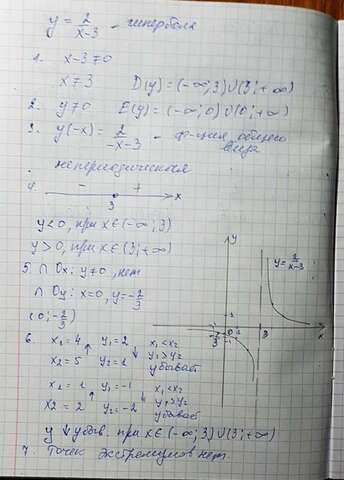 y = 2/(x-3) - гипербола
1. x-3≠0
x≠3 D(y)=(-∞;3)∪(3;+∞)
2. y≠0 E(y)=(-∞;0)∪(0;+∞)
3. y(-x) = 2/(-x-3) - ф-ция общего вида
непериодическая
4. - + 3 x
y<0, при x∈(-∞;3)
y>0, при x∈(3;+∞)
5. ∩ Ox: y≠0, нет
∩ Oy: x=0, y=-2/3
(0;-2/3)
6. x₁=4 ↑ y₁=2 ↓ x₁<x₂
x₂=5 y₂=1 y₁>y₂
убывает
x₁=1 ↑ y₁=-1 ↓ x₁<x₂
x₂=2 y₂=-2 y₁>y₂
убывает
y ↓ убыв. при x∈(-∞;3)∪(3;+∞)
7. Точек экстремумов нет.
y
y=2/(x-3)
1
0 1 3
x